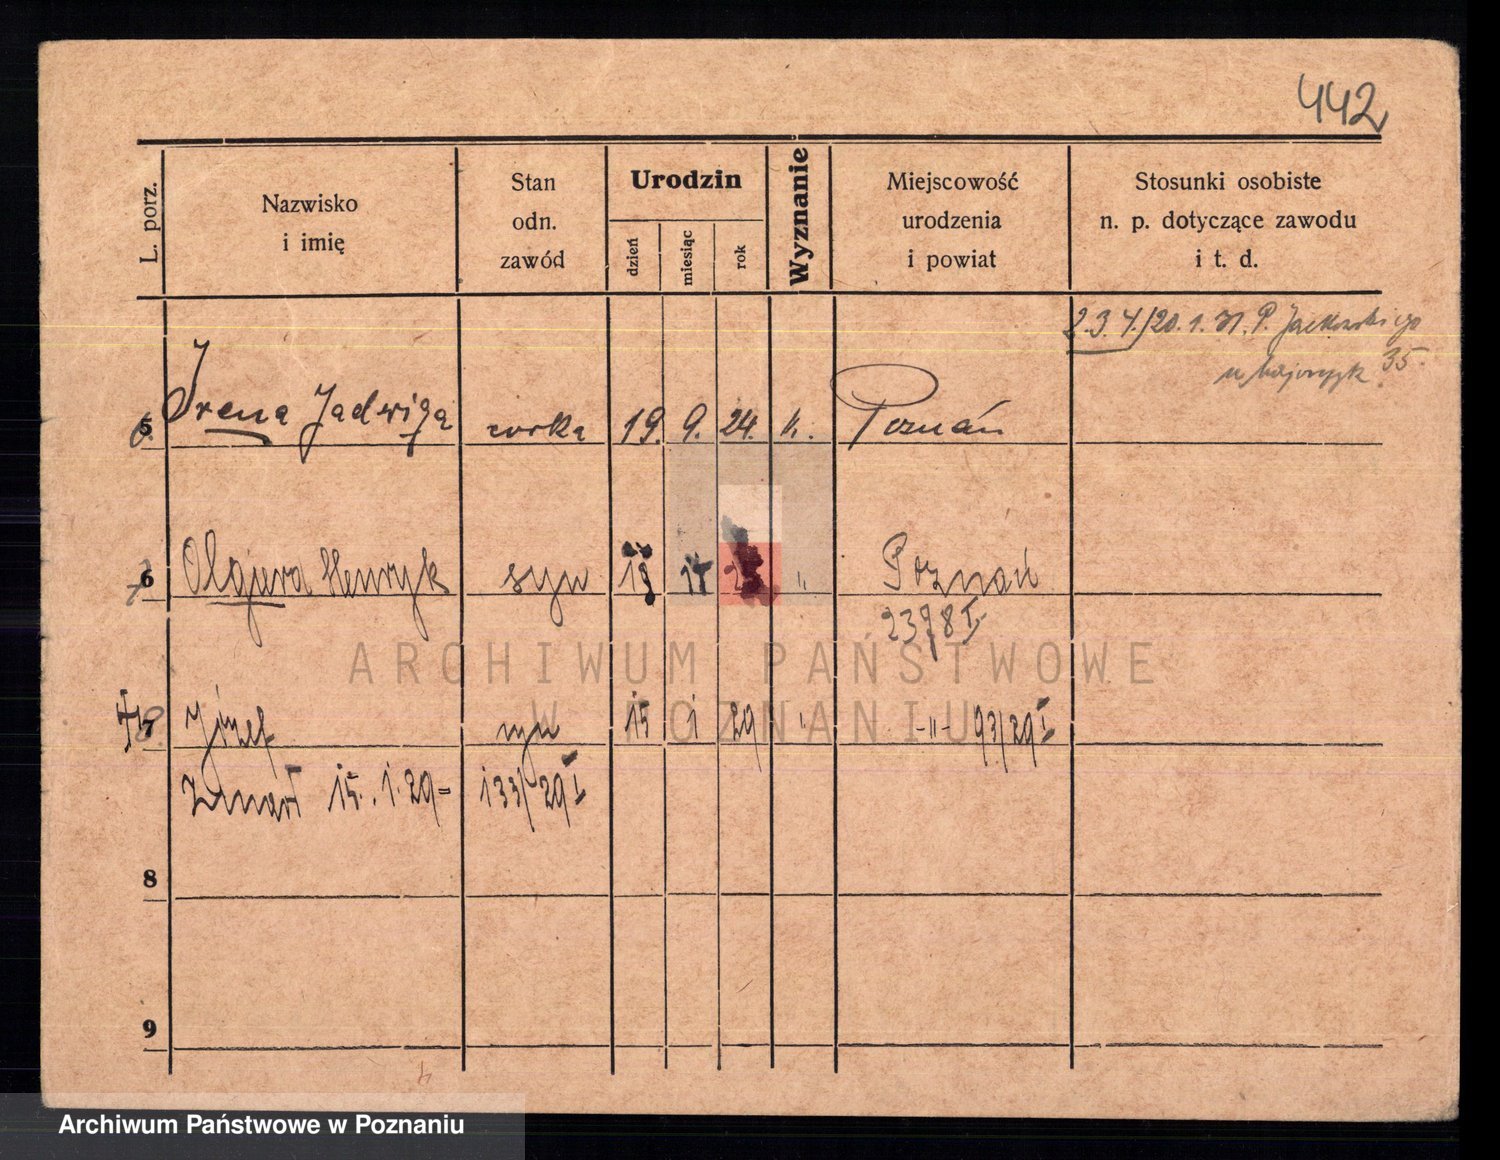 442
L. porz.
Nazwisko
i imię
Stan
odn.
zawód
Urodzin
dzień
miesiąc
rok
Wyznanie
Miejscowość
urodzenia
i powiat
Stosunki osobiste
n. p. dotyczące zawodu
i t. d.
2.3.4./20.1.31. P. Jackowskiego
35.
5 Irena Jadwiga corka 19. 9. 24. Poznań
6 Henryk syn Poznań
2398 I
7 Józef syn 15 1 29 -„- 93/29 I
Zmarł 15.1.29= 133/29 I
8
9
ARCHIWUM PAŃSTWOWE
W POZNANIU
Archiwum Państwowe w Poznaniu